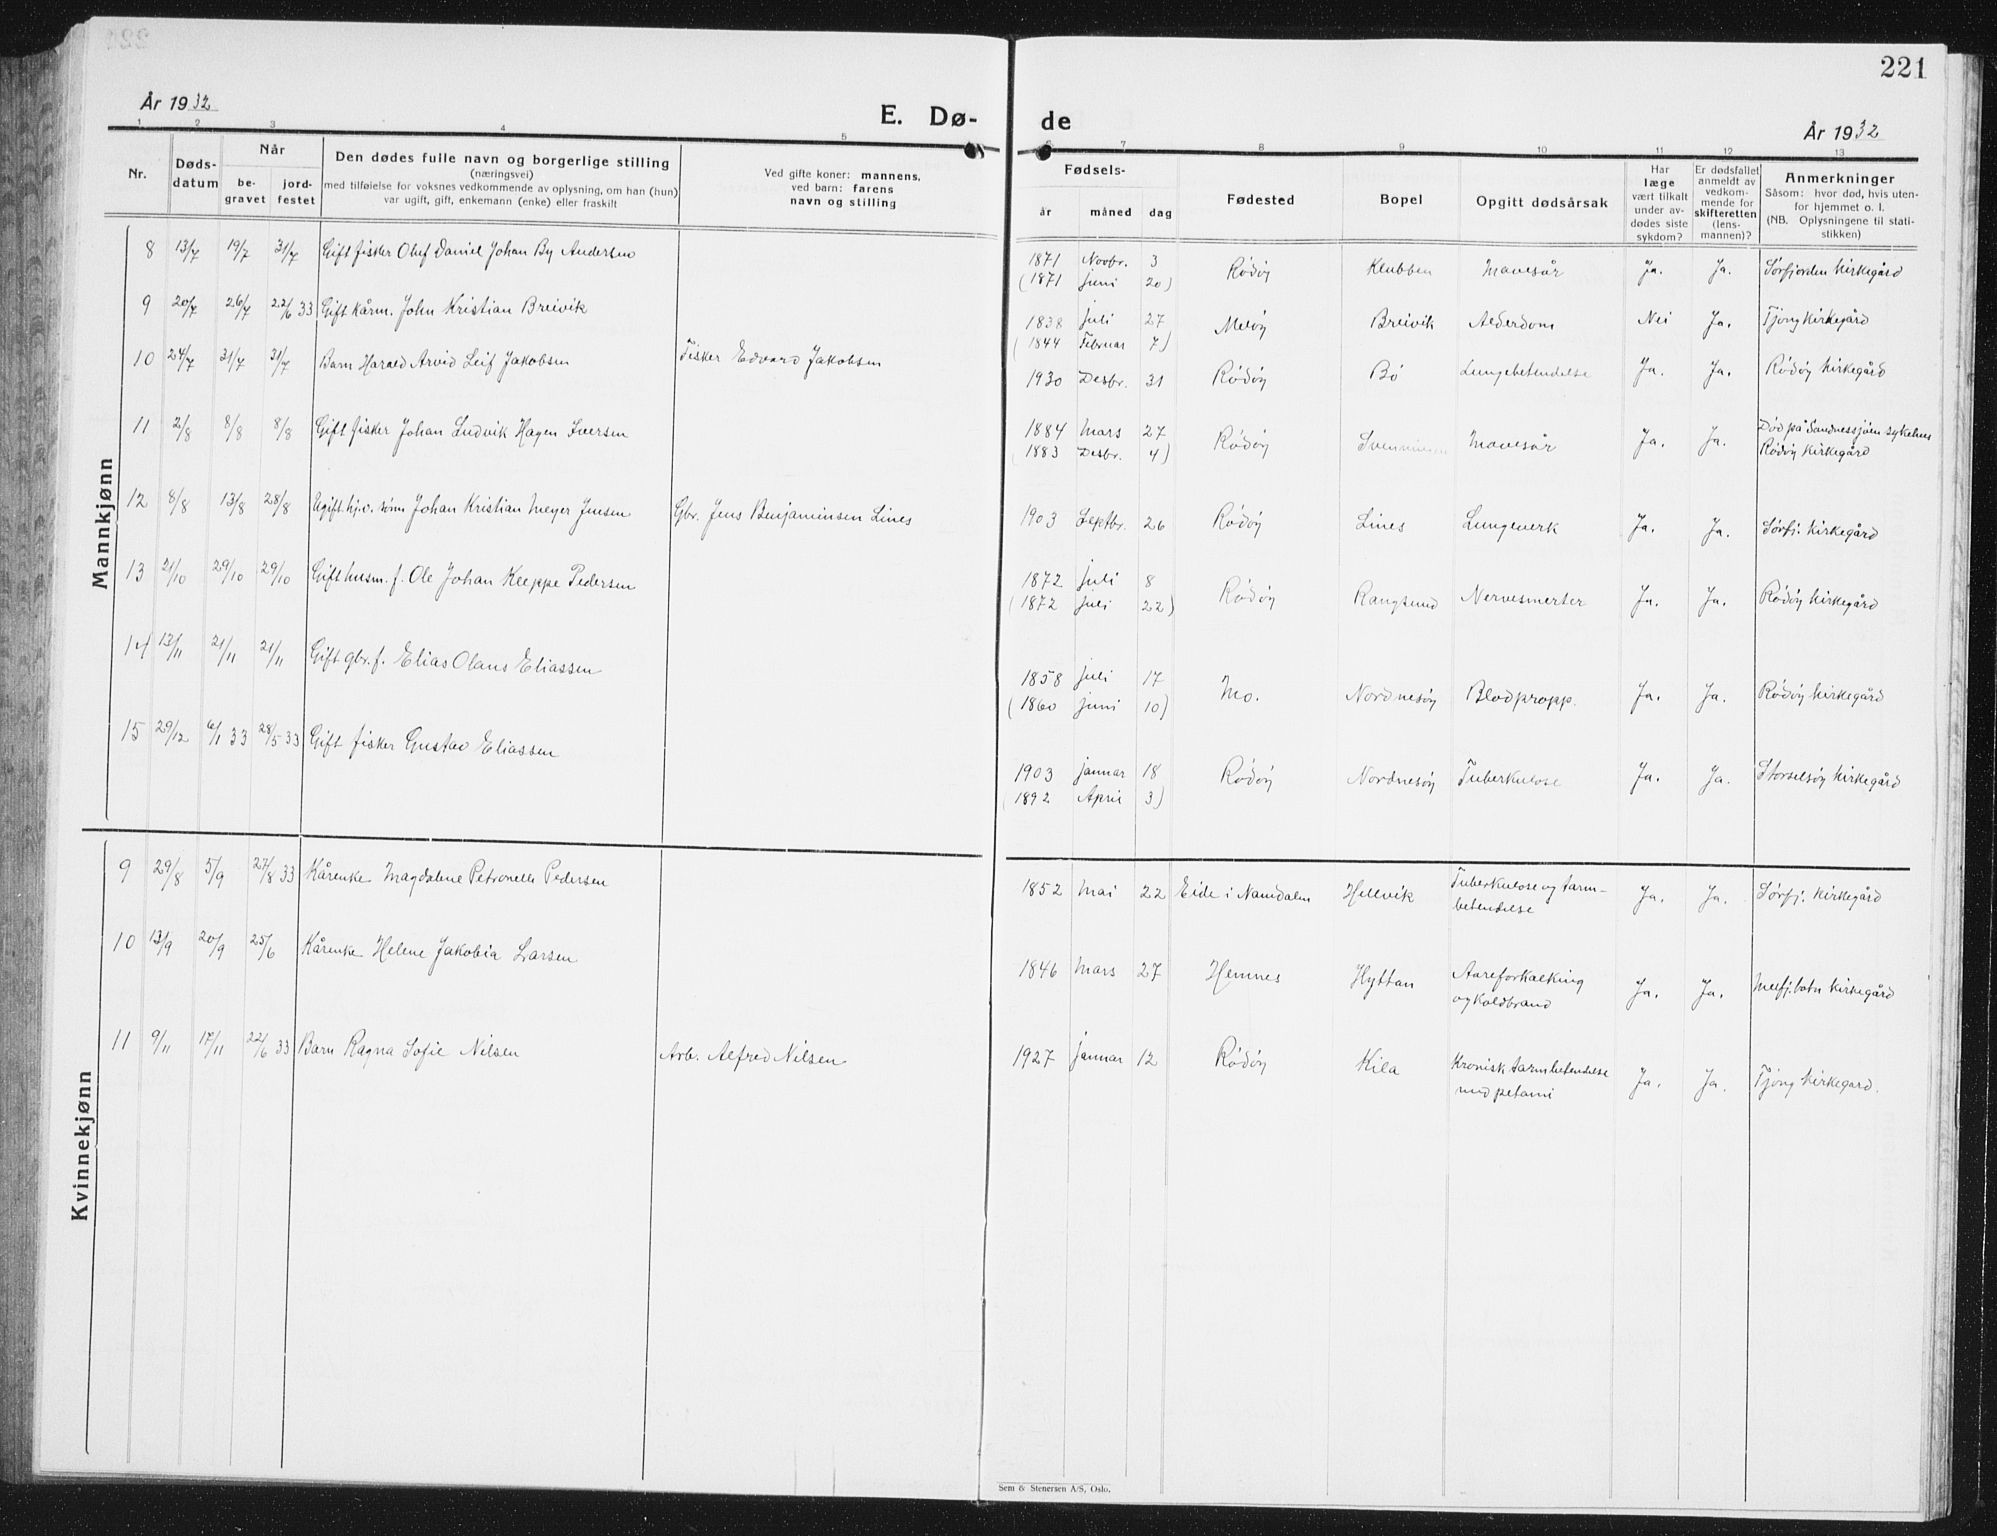 221
År 1932
E. Dø-
de
År 1932
1 2 3 4 5 6 7 8 9 10 11 12 13
Nr.
Døds-
datum
Når
be-
gravet
jord-
festet
Den dødes fulle navn og borgerlige stilling
(næringsvei)
med tilføielse for voksnes vedkommende av oplysning, om han (hun)
var ugift, gift, enkemann (enke) eller fraskilt
Ved gifte koner: mannens,
ved barn: farens
navn og stilling
Fødsels-
år måned dag
Fødested
Bopel
Opgitt dødsårsak
Har
læge
vært tilkalt
under av-
dødes siste
sykdom?
Er dødsfallet
anmeldt av
vedkom-
mende for
skifteretten
(lens-
mannen)?
Anmerkninger
Såsom: hvor død, hvis uten-
for hjemmet o. l.
(NB. Oplysningene til stati-
stikken)
Mannkjønn
8 13/7 19/7 31/7 Gift fisker Oluf Daniel Johan By Andersen
1871 Novbr. 3 Rödöy Klubben Mavesår Ja. Ja. Sørfjorden kirkegård
(1871 juni 20)
9 20/7 26/7 22/6 33 Gift kårm. John Kristian Breivik
1838 juli 27 Melöy Breivik Alderdom Nei Ja. Tjong kirkegård
(1844 Februar 7)
10 24/7 31/7 31/7 Barn Harald Arvid Leif Jakobsen Fisker Edvard Jakobsen
1930 Desbr. 31 Rödöy Bö Lungebetendelse Ja. Ja. Rödöy kirkegård
11 2/8 8/8 8/8 Gift fisker Johan Ludvik Hagen Iversen
1884 Mars 27 Rödöy Mavesår Ja. Ja. Död på Sandnessjöen sykehus
(1883 Desbr. 4) Rödöy kirkegård
12 8/8 13/8 28/8 Ugift hj.v. sönn Johan Kristian Meyer Jensen Gbr. Jens Benjaminsen Lines
1903 Septbr. 26 Rödöy Lines Lungeverk Ja. Ja. Sörfj. kirkegård
13 21/10 29/10 29/10 Gift husm. f. Ole Johan Kleppe Pedersen
1872 juli 8 Rödöy Rangsund Nervesmerter Ja. Ja. Rödöy kirkegård
(1872 juli 22)
14 13/11 21/11 21/11 Gift gbr. f. Elias Olaus Eliassen
1858 juli 17 Mo. Nordnesöy Blodpropp. Ja. Ja. Rödöy kirkegård
(1860 juni 10)
15 29/12 6/1 33 28/5 33 Gift fisker Gustav Eliassen
1903 januar 18 Rödöy Nordnesöy Tuberkulose Ja. Ja. Storselsöy kirkegård
(1892 April 3)
Kvinnekjønn
9 29/8 5/9 27/8 33 Kårenke Magdalene Petronelle Pedersen
1852 Mai 22 Eide i Namdalen Hellvik Tuberkulose og tarm-
betendelse Ja. Ja. Sörfj. kirkegård
10 13/9 20/9 25/6 Kårenke Helene Jakobia Larsen
1846 Mars 27 Hemnes Hyttan Aareforkalking
og koldbrand Ja. Ja. Melfj. botn kirkegård
11 9/11 17/11 22/6 33 Barn Ragna Sofie Nilsen Arb. Alfred Nilsen
1927 januar 12 Rödöy Kila Kronisk tarmbetendelse
med petami Ja. Ja. Tjong kirkegård.
Sem & Stenersen A/S, Oslo.